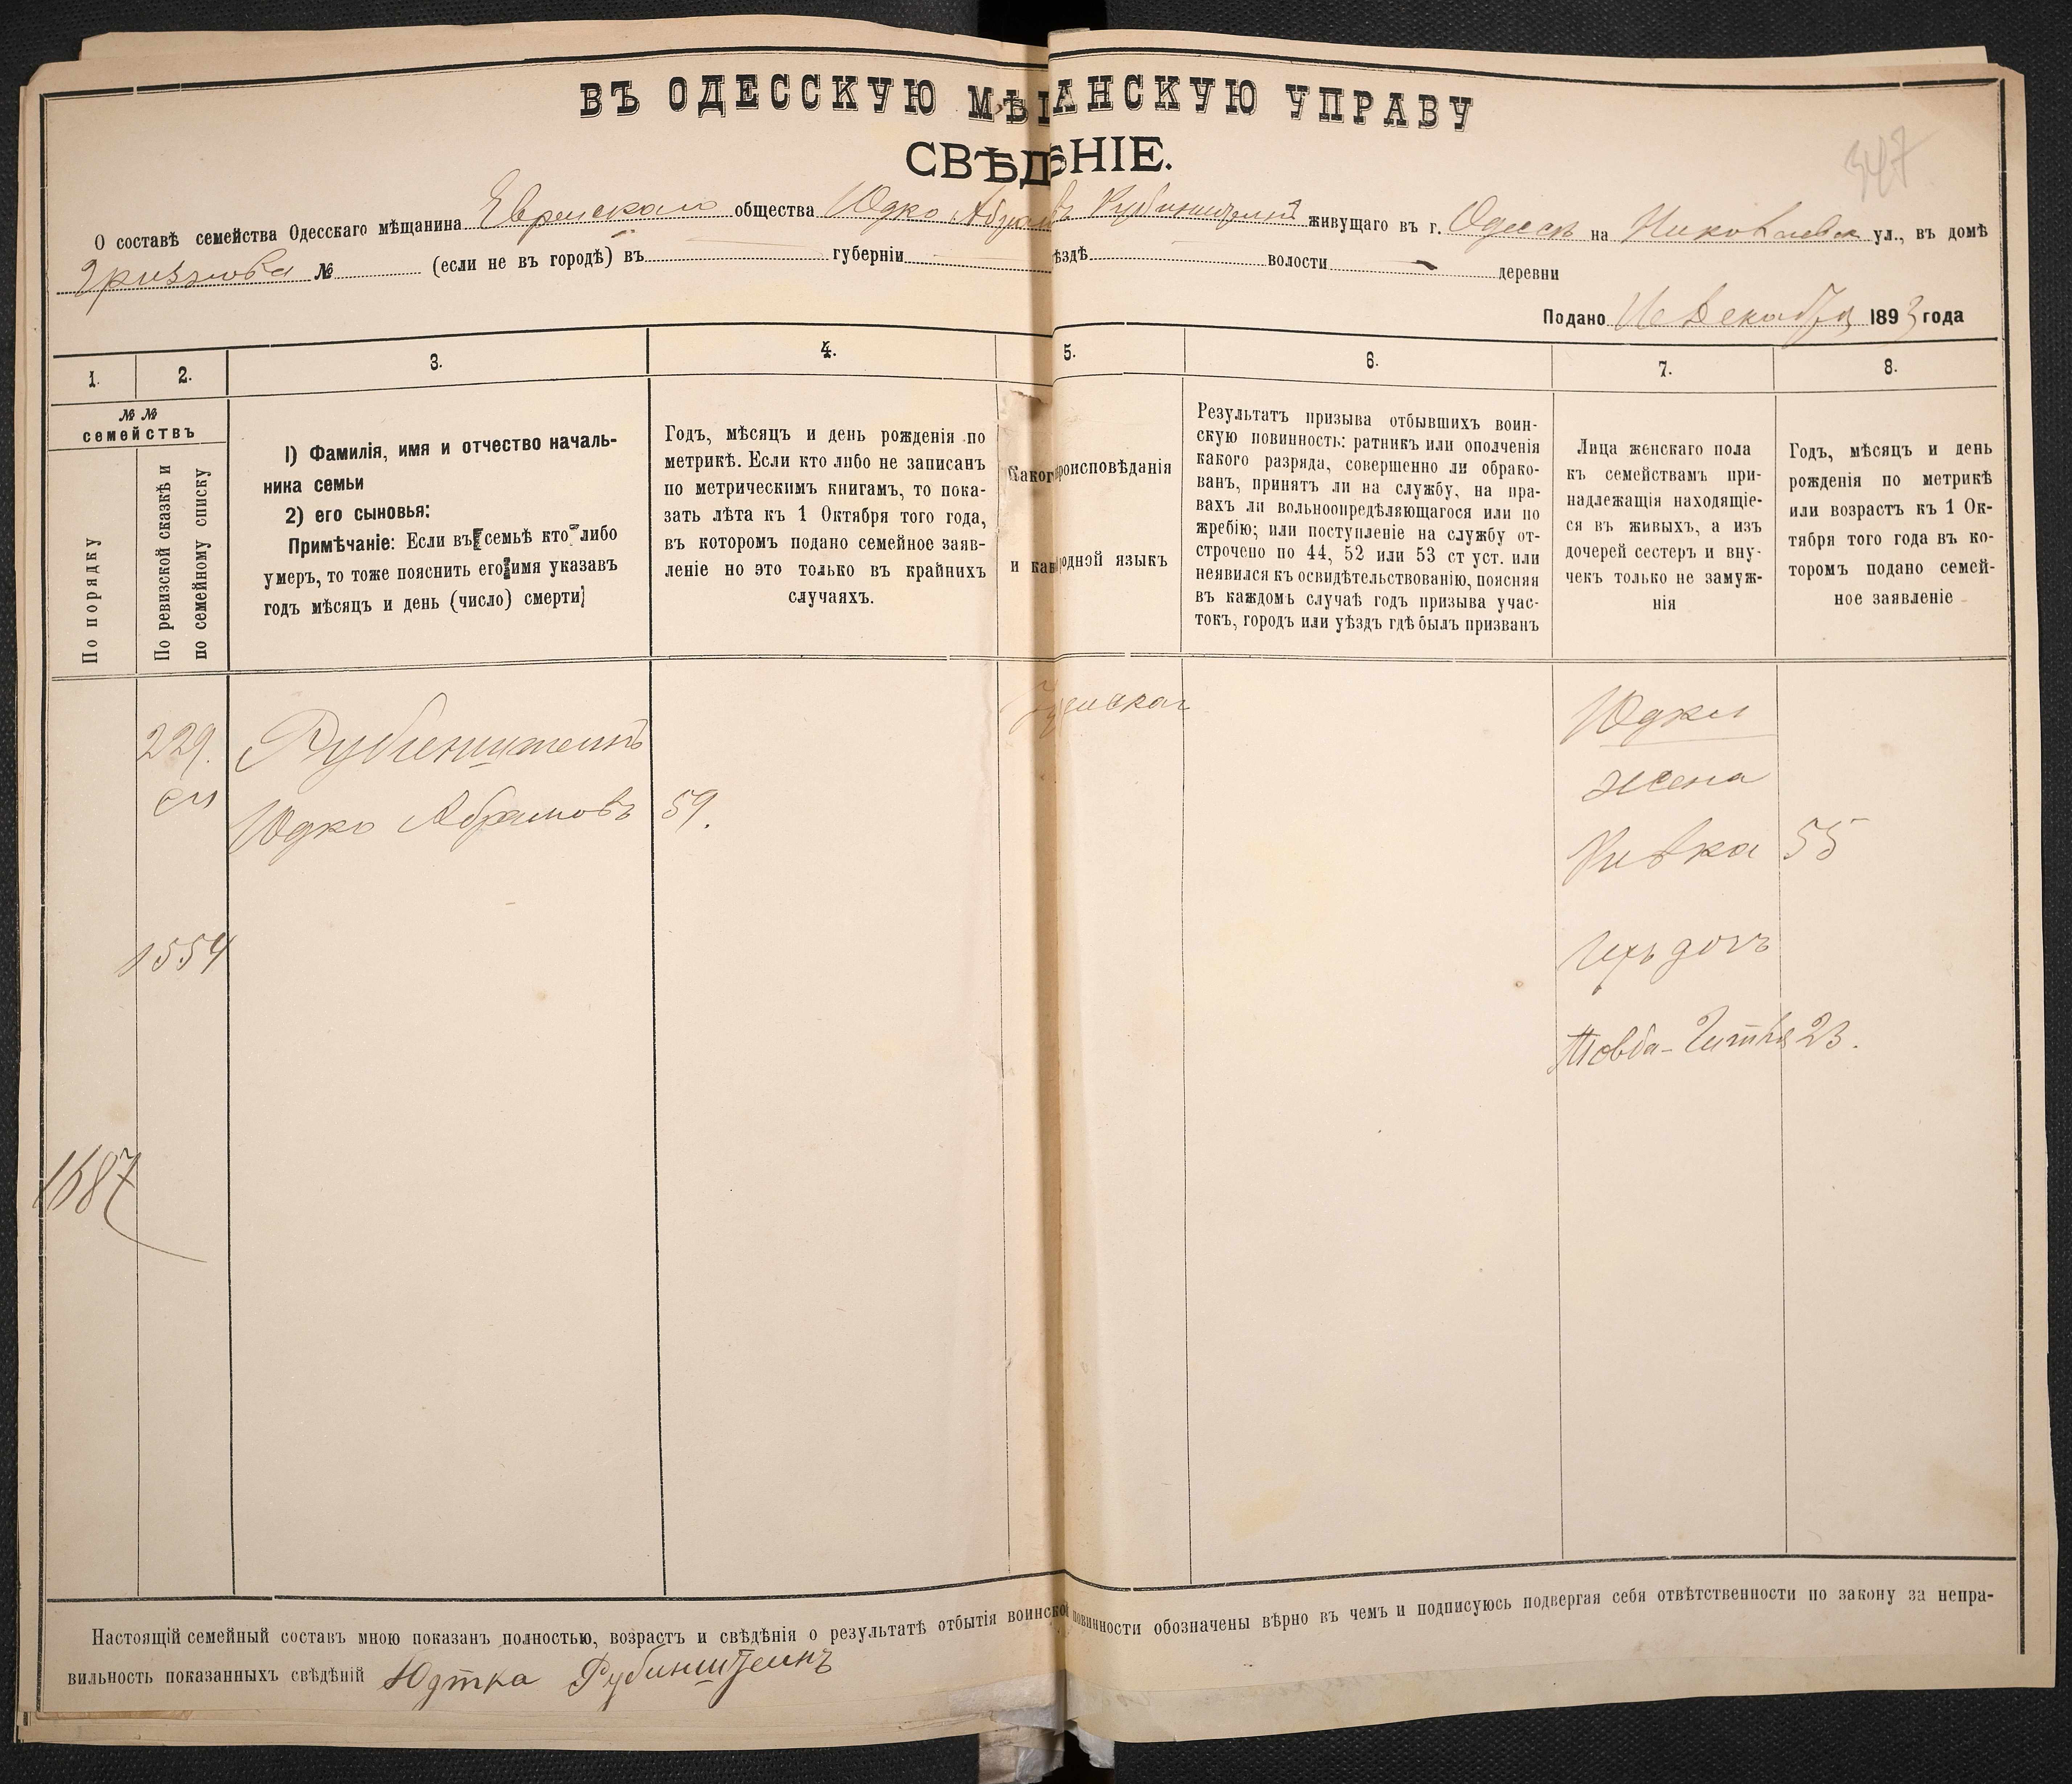 ВЪ ОДЕССКУЮ МѢЩАНСКУЮ УПРАВУ
СВѢДѢНІЕ.
347
О составѣ семейства Одесскаго мѣщанина Еврейскаго общества Юдко Абрамовъ Рубинштейнъ живущаго въ г. Одессѣ на ул., въ домѣ
№ (если не въ городѣ) въ губерніи ѣздѣ волости деревни
Подано 16 Декабря 1893 года
1.
2.
3.
4.
5.
6.
7.
8.
№ №
семействъ
По порядку
По ревизской сказкѣ и
по семейному списку
1) Фамилія, имя и отчество началь-
ника семьи
2) его сыновья:
Примѣчаніе: Если въ семьѣ кто либо
умеръ, то тоже пояснить его имя указавъ
годъ мѣсяцъ и день (число) смерти
Годъ, мѣсяцъ и день рожденія по
метрикѣ. Если кто либо не записанъ
по метрическимъ книгамъ, то пока-
зать лѣта къ 1 Октября того года,
въ которомъ подано семейное заяв-
леніе но это только въ крайнихъ
случаяхъ.
Каког роисповѣданія
и как родной языкъ
Результатъ призыва отбывшихъ воин-
скую повинность: ратникъ или ополченія
какого разряда, совершенно ли обрако-
ванъ, принятъ ли на службу, на пра-
вахъ ли вольноопредѣляющагося или по
жребію; или поступленіе на службу от-
строчено по 44, 52 или 53 ст уст. или
неявился къ освидѣтельствованію, поясняя
въ каждомъ случаѣ годъ призыва учас-
токъ, городъ или уѣздъ гдѣ былъ призванъ
Лица женскаго пола
къ семействамъ при-
надлежащія находящіе-
ся въ живыхъ, а изъ
дочерей сестеръ и вну-
чекъ только не замуж-
нія
Годъ, мѣсяцъ и день
рожденія по метрикѣ
или возрастъ къ 1 Ок-
тября того года въ ко-
торомъ подано семей-
ное заявленіе
229.
Рубинштейнъ
Юдко Абрамовъ 59.
Юдки
жена
Ривка 55
1554
Ихъ дочь
Товба-Гитля 23.
1687
Настоящій семейный составъ мною показанъ полностью, возрастъ и свѣдѣнія о результатѣ отбытія воинской повинности обозначены вѣрно въ чемъ и подписуюсь подвергая себя отвѣтственности по закону за непра-
вильность показанныхъ свѣдѣній Юдтка Рубинштейнъ